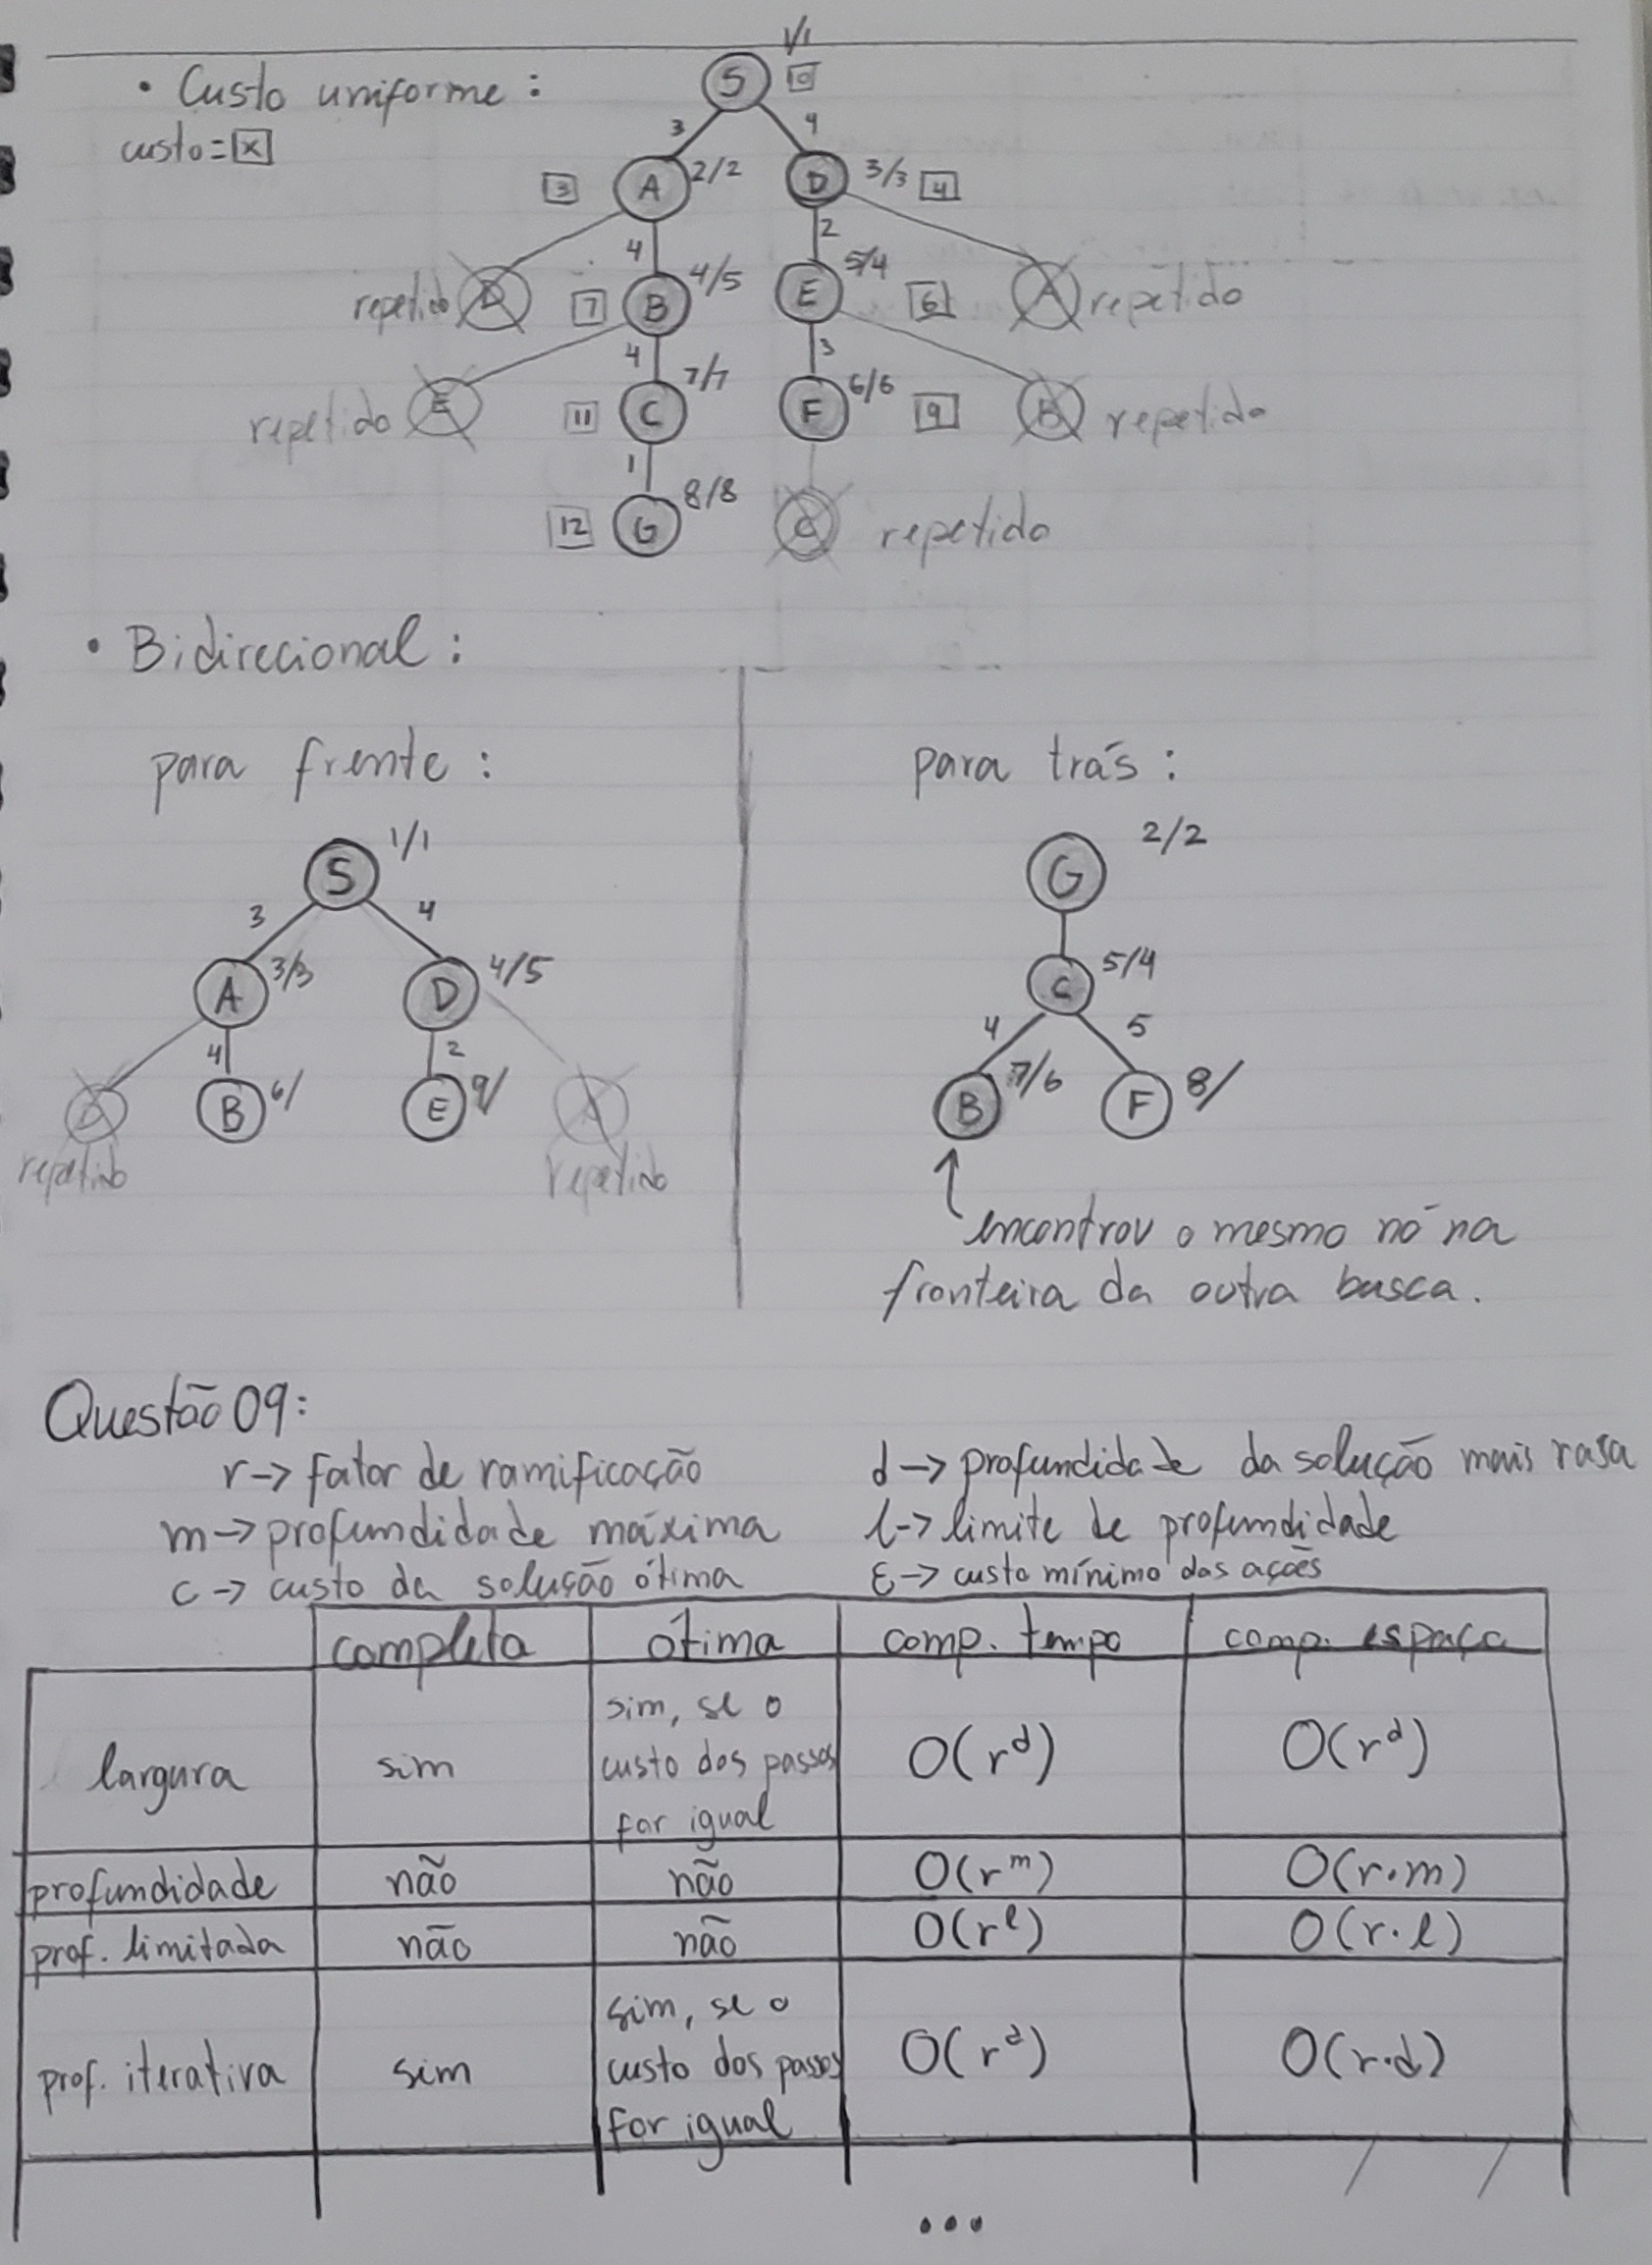 1/1
• Custo uniforme :
S 0
custo = x
3 4
3 A 2/2 D 3/3 4
4 2
repetido D 7 B 4/5 E 5/4 6 A repetido
4 3
repetido E 11 C 7/7 F 6/6 9 B repetido
1
12 G 8/8 repetido
• Bidirecional :
para frente :
S 1/1
3 4
A 3/3 D 4/5
4 2
D B 6/ E 9/
repetido repetido
para trás :
G 2/2
C 5/4
4 5
B 7/6 F 8/
encontrou o mesmo nó na
fronteira da outra busca.
Questão 09:
r → fator de ramificação d → profundidade da solução mais rasa
m → profundidade máxima l → limite de profundidade
c → custo da solução ótima ε → custo mínimo das ações
completa ótima comp. tempo comp. espaço
largura sim sim, se o
custo dos passos
for igual O(r^d) O(r^d)
profundidade não não O(r^m) O(r.m)
prof. limitada não não O(r^l) O(r.l)
prof. iterativa sim sim, se o
custo dos passos
for igual O(r^d) O(r.d)
...